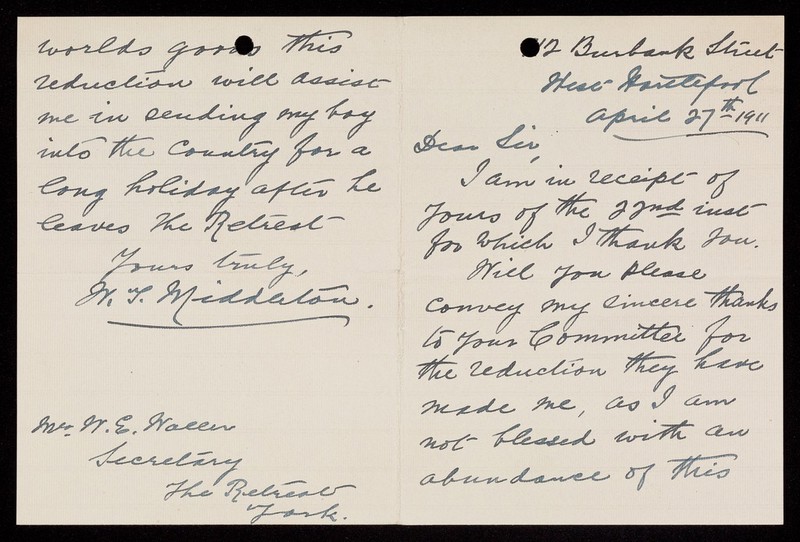 12 Burbank Street
West Hartlepool
April 27th 1911
Dear Sir,
I am in receipt of
yours of the 22nd inst
for which I thank you.
Will you please
convey my sincere thanks
to your Committee for
the reduction they have
made me, as I am
not blessed with an
abundance of this
worlds goods this
reduction will assist
me in sending my boy
into the Country for a
long holiday after he
leaves the Retreat
Yours truly,
Middleton.
Mr W. E. Waller
Secretary
The Retreat
York.